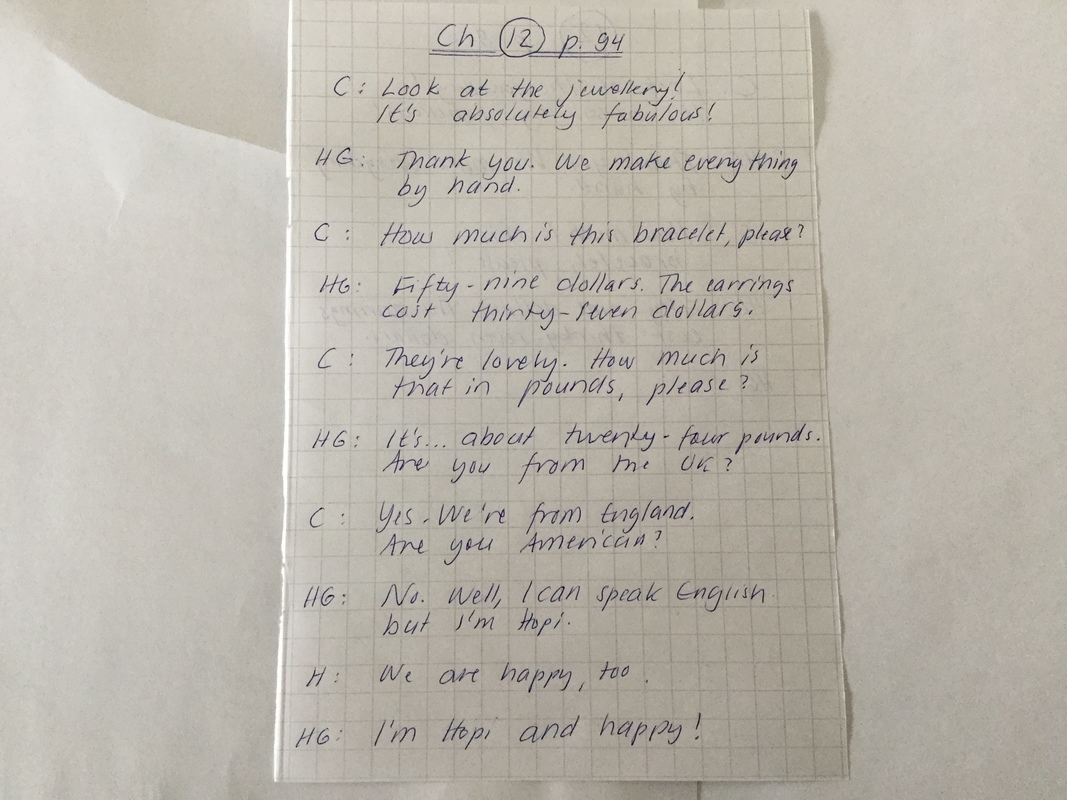 Ch 12 p. 94
C: Look at the jewellery!
It's absolutely fabulous!
HG: Thank you. We make everything
by hand.
C: How much is this bracelet, please?
HG: Fifty-nine dollars. The earrings
cost thirty-seven dollars.
C: They're lovely. How much is
that in pounds, please?
HG: It's... about twenty-four pounds.
Are you from the UK?
C: Yes. We're from England.
Are you American?
HG: No. Well, I can speak English
but I'm Hopi.
H: We are happy, too.
HG: I'm Hopi and happy!